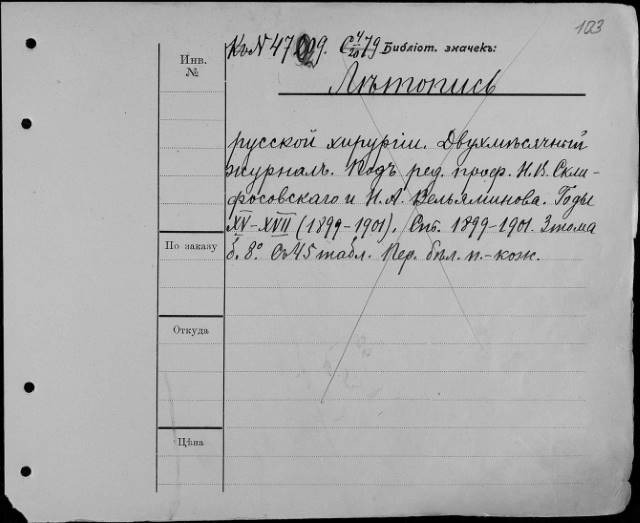 103
Инв. №
Къ № 47209. С 4/20 79 Библіот. значекъ:
Лѣтопись
русской хирургіи. Двухмѣсячный
журналъ. Подъ ред. проф. Н. В. Скли-
фосовскаго и Н. А. Вельяминова. Годы
XV-XVII (1899-1901). Спб. 1899-1901. 3 тома
б. 8°. Съ 45 табл. Пер. бѣл. п.-кож.
По заказу
Откуда
Цѣна